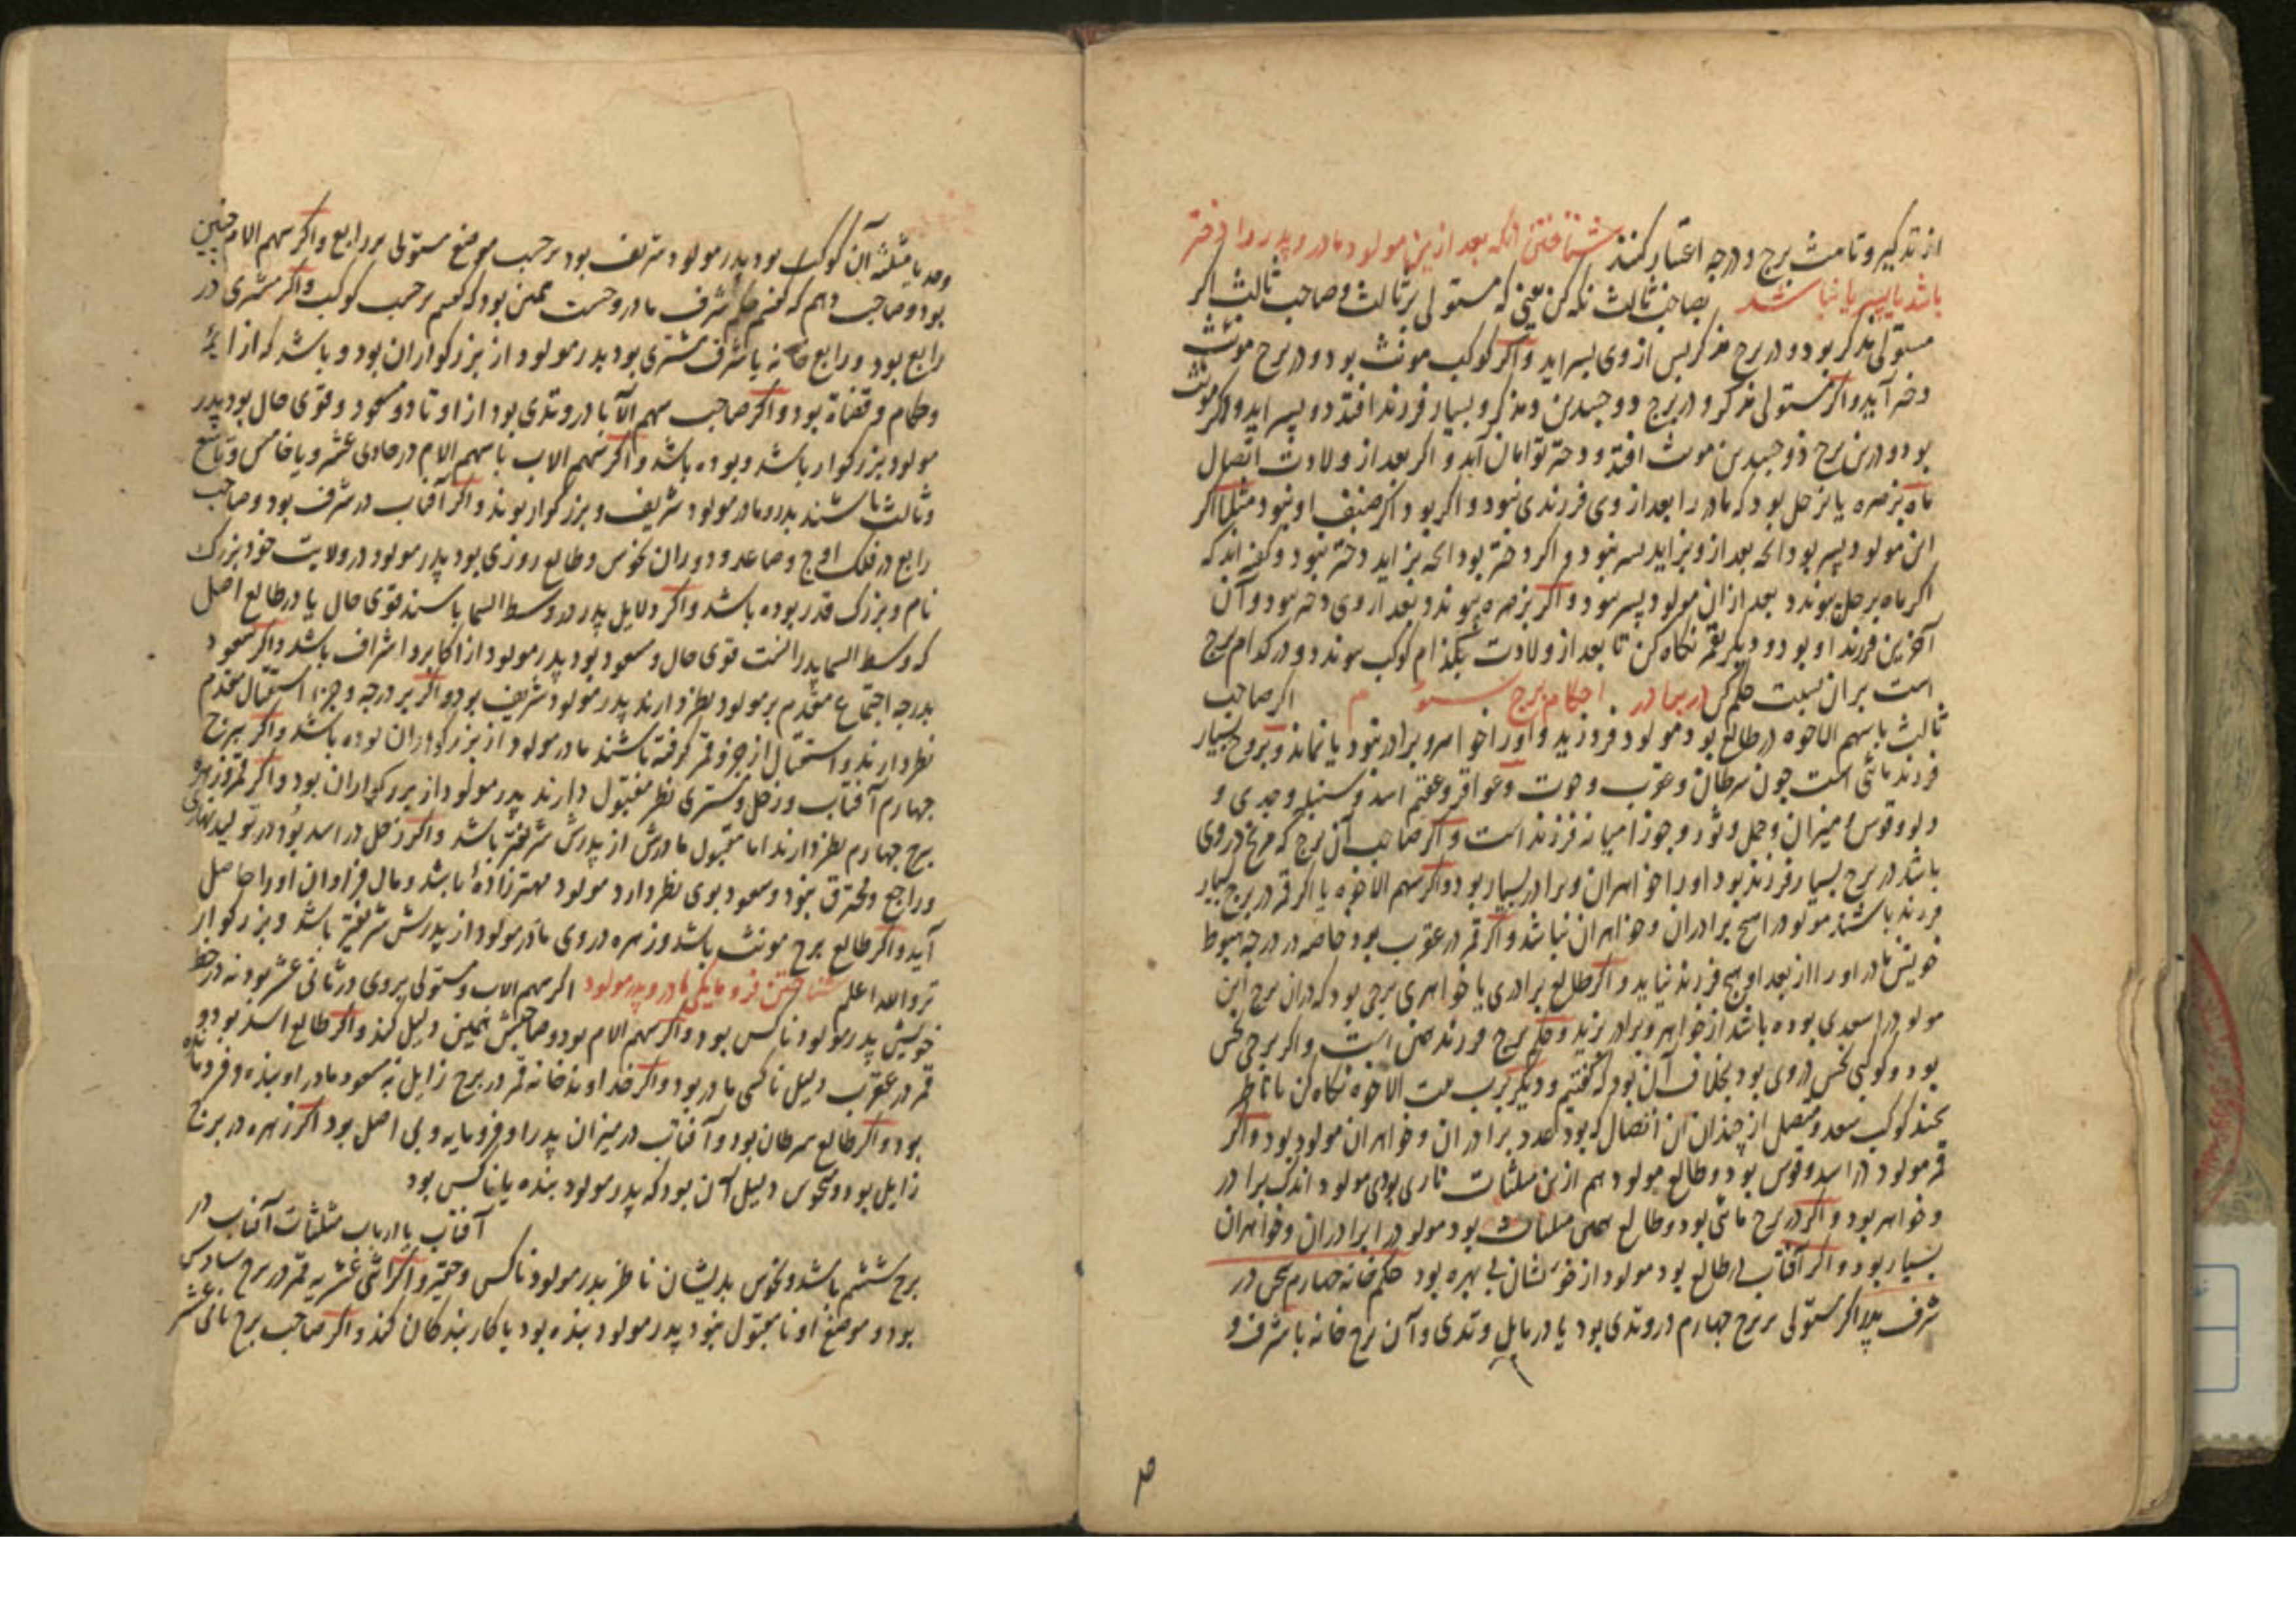 از تذکیر و تانیث برج و درجه اعتبار کنند شناختن آنکه بعد ازین مولود مادر و پدر را دختر
باشد یا پسر یا نباشد بصاحب ثالث نگه کن یعنی که مستولی بر ثالث و صاحب ثالث اگر
مستولی مذکر بود و در برج مذکر پس از وی پسر اید و اگر کوکب مونث بود و در برج مونث
دختر آید و اگر مستولی مذکر و در برج ذو جسدین و مذکر و بسیار فرزند افتد دو پسر اید و اگر مونث
بود و درین برج ذو جسدین مونث افتد دو دختر توامان آید و اگر بعد از ولادت اتصال
ماه بزهره یا بزحل بود که مادر را بعد از وی فرزندی نبود و اگر بود اگر صنف او نبود مثلا اگر
این مولود پسر بود انچه بعد ازو بزاید پسر نبود و اگر دختر بود انچه بزاید دختر نبود و گفته اند که
اگر ماه بزحل پیوندد بعد از آن مولود پسر بود و اگر بزهره پیوندد بعد از وی دختر بود و آن
آخرین فرزند او بود و دیگر بقمر نگاه کن تا بعد از ولادت بکدام کوکب پیوندد و در کدام برج
است بر ان نسبت حکم کن احکام برج سوم اگر صاحب
ثالث یا سهم الاخوه در طالع بود مولود فروزید و او را خواهر و برادر نبود یا نماند و بروج بسیار
فرزند مائی است چون سرطان و عقرب و حوت و عواقر و عقیم اسد و سنبله و جدی و
دلو و قوس و میزان و حمل و ثور و جوزا میانه فرزند است و اگر صاحب آن برج که مریخ در وی
باشد در برج بسیار فرزند بود او را خواهران و برادر بسیار بود و اگر سهم الاخوه یا اگر قمر در برج بسیار
فرزند باشد مولود را هیچ برادران و خواهران نباشد و اگر قمر در عقرب بود خاصه در درجه هبوط
خویش مادر او را از بعد او هیچ فرزند نیاید و اگر طالع برادری یا خواهری برجی بود که در آن برج این
مولود را سعدی بوده باشد از خواهر و برادر بزید و حکم برج فرزند همین است و اگر برجی نحس
بود و کوکبی نحس در وی بود بخلاف آن بود که گفتیم و دیگر برب بیت الاخوه نگاه کن تا ناظر
بچند کوکب سعد و متصل از چندان آن اتصال که بود عدد برادران و خواهران مولود بود و اگر
قمر مولود در اسد و قوس بود و طالع مولود هم ازین مثلثات ناری بودی مولود اندک برادر
و خواهر بود و اگر در برج مائی بود و طالع همین مثلثات بود مولود را برادران و خواهران
بسیار بود و اگر آفتاب در طالع بود مولود از خویشان بی بهره بود حکم خانه چهارم سخن در
شرف پدر اگر مستولی بر برج چهارم در وتدی بود یا در مایل وتدی و آن برج خانه یا شرف و
۵
وحد یا مثلثه آن کوکب بود پدر مولود شریف بود بر حسب موضع مستولی بر رابع و اگر سهم الام چنین
بود و صاحب دهم که گفتم حکم شرف مادر و حسمت همین بود که گفتم بر حسب کوکب و اگر مشتری در
رابع بود و رابع خانه یا شرف مشتری بود پدر مولود از بزرگواران بود و باشد که از ایمه
و حکام و قضاة بود و اگر صاحب سهم الآبا در وتدی بود از اوتاد و مسعود و قوی حال بود پدر
مولود بزرگوار باشد و بوده باشد و اگر سهم الاب یا سهم الام در حادی عشر و یا خامس و تاسع
و ثالث باشند پدر و مادر مولود شریف و بزرگوار بوند و اگر آفتاب در شرف بود و صاحب
رابع در فلک اوج و صاعد و دوران نحوس و طالع روزی بود پدر مولود در ولایت خود بزرگ
نام و بزرگ قدر بوده باشد و اگر دلایل پدر در وسط السما باشند قوی حال یا در طالع اصل
که وسط السما پدر است قوی حال و مسعود بود پدر مولود از اکابر و اشراف باشد و اگر سعود
بدرجه اجتماع مقدم بر مولود نظر دارند پدر مولود شریف بود و اگر بر درجه و جزء استقبال مقدم
نظر دارند و استقبال از جزو قمر گرفته باشند مادر مولود از بزرگواران بوده باشد و اگر ببرج
چهارم آفتاب و زحل و مشتری نظر مقبول دارند پدر مولود از بزرگواران بود و اگر قمر و زهره
ببرج چهارم نظر دارند اما مقبول مادرش از پدرش شریفتر باشد و اگر زحل در اسد بود در تولید نهاری
و راجع و محترق نبود و سعود بوی نظر دارد مولود مهتر زاده باشد و مال فراوان او را حاصل
آید و اگر طالع برج مونث باشد و زهره در وی مادر مولود از پدرش شریفتر باشد و بزرگوار
تر والله اعلم شناختن فرومایگی مادر و پدر مولود اگر سهم الاب و مستولی بر وی در ثانی عشر بود نه در حظ
خویش پدر مولود ناکس بود و اگر سهم الام بود و صاحبش همین دلیل کند و اگر طالع اسد بود و
قمر در عقرب دلیل ناکسی مادر بود و اگر خداوند خانه قمر در برج زایل نه مسعود مادر او بنده و فرومایه
بود و اگر طالع سرطان بود و آفتاب در میزان پدر او فرومایه و بی اصل بود اگر زهره در برج
زایل بود و منحوس دلیل آن بود که پدر مولود بنده یا ناکس بود
آفتاب یا ارباب مثلثات آفتاب در
برج ششم باشد و نحوس بدیشان ناظر پدر مولود ناکس و حقیر و اگر اثنی عشریه قمر در برج سادس
بود و موضع او نا مقبول نبود پدر مولود بنده بود یا کار بندگان کند و اگر صاحب برج ثانی عشر